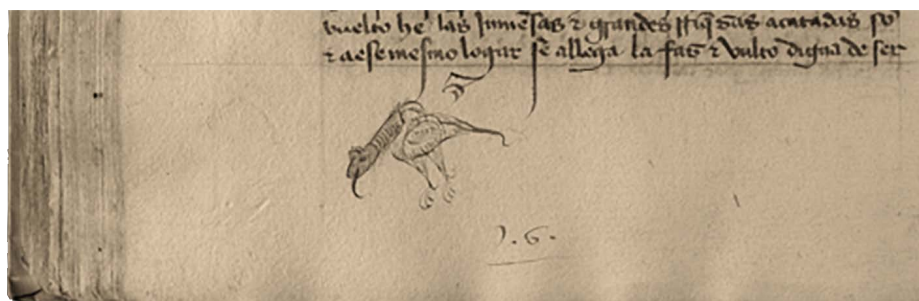 vuelto he las Jnmensas & grandes riq̃zas acatadas po
& a ese mesmo logar se allega la faz & vulto digna de ser
J. G.